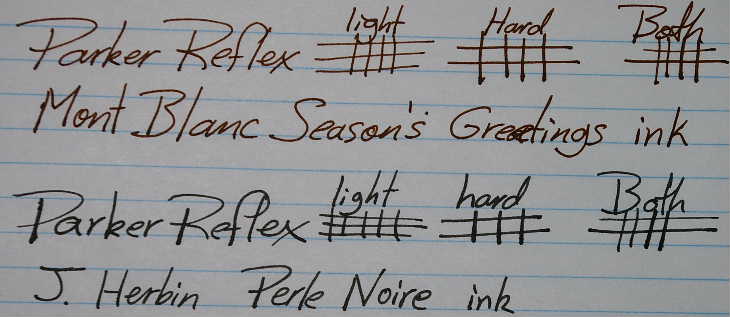 Parker Reflex light Hard Both
Mont Blanc Season's Greetings ink
Parker Reflex light hard Both
J. Herbin Perle Noire ink